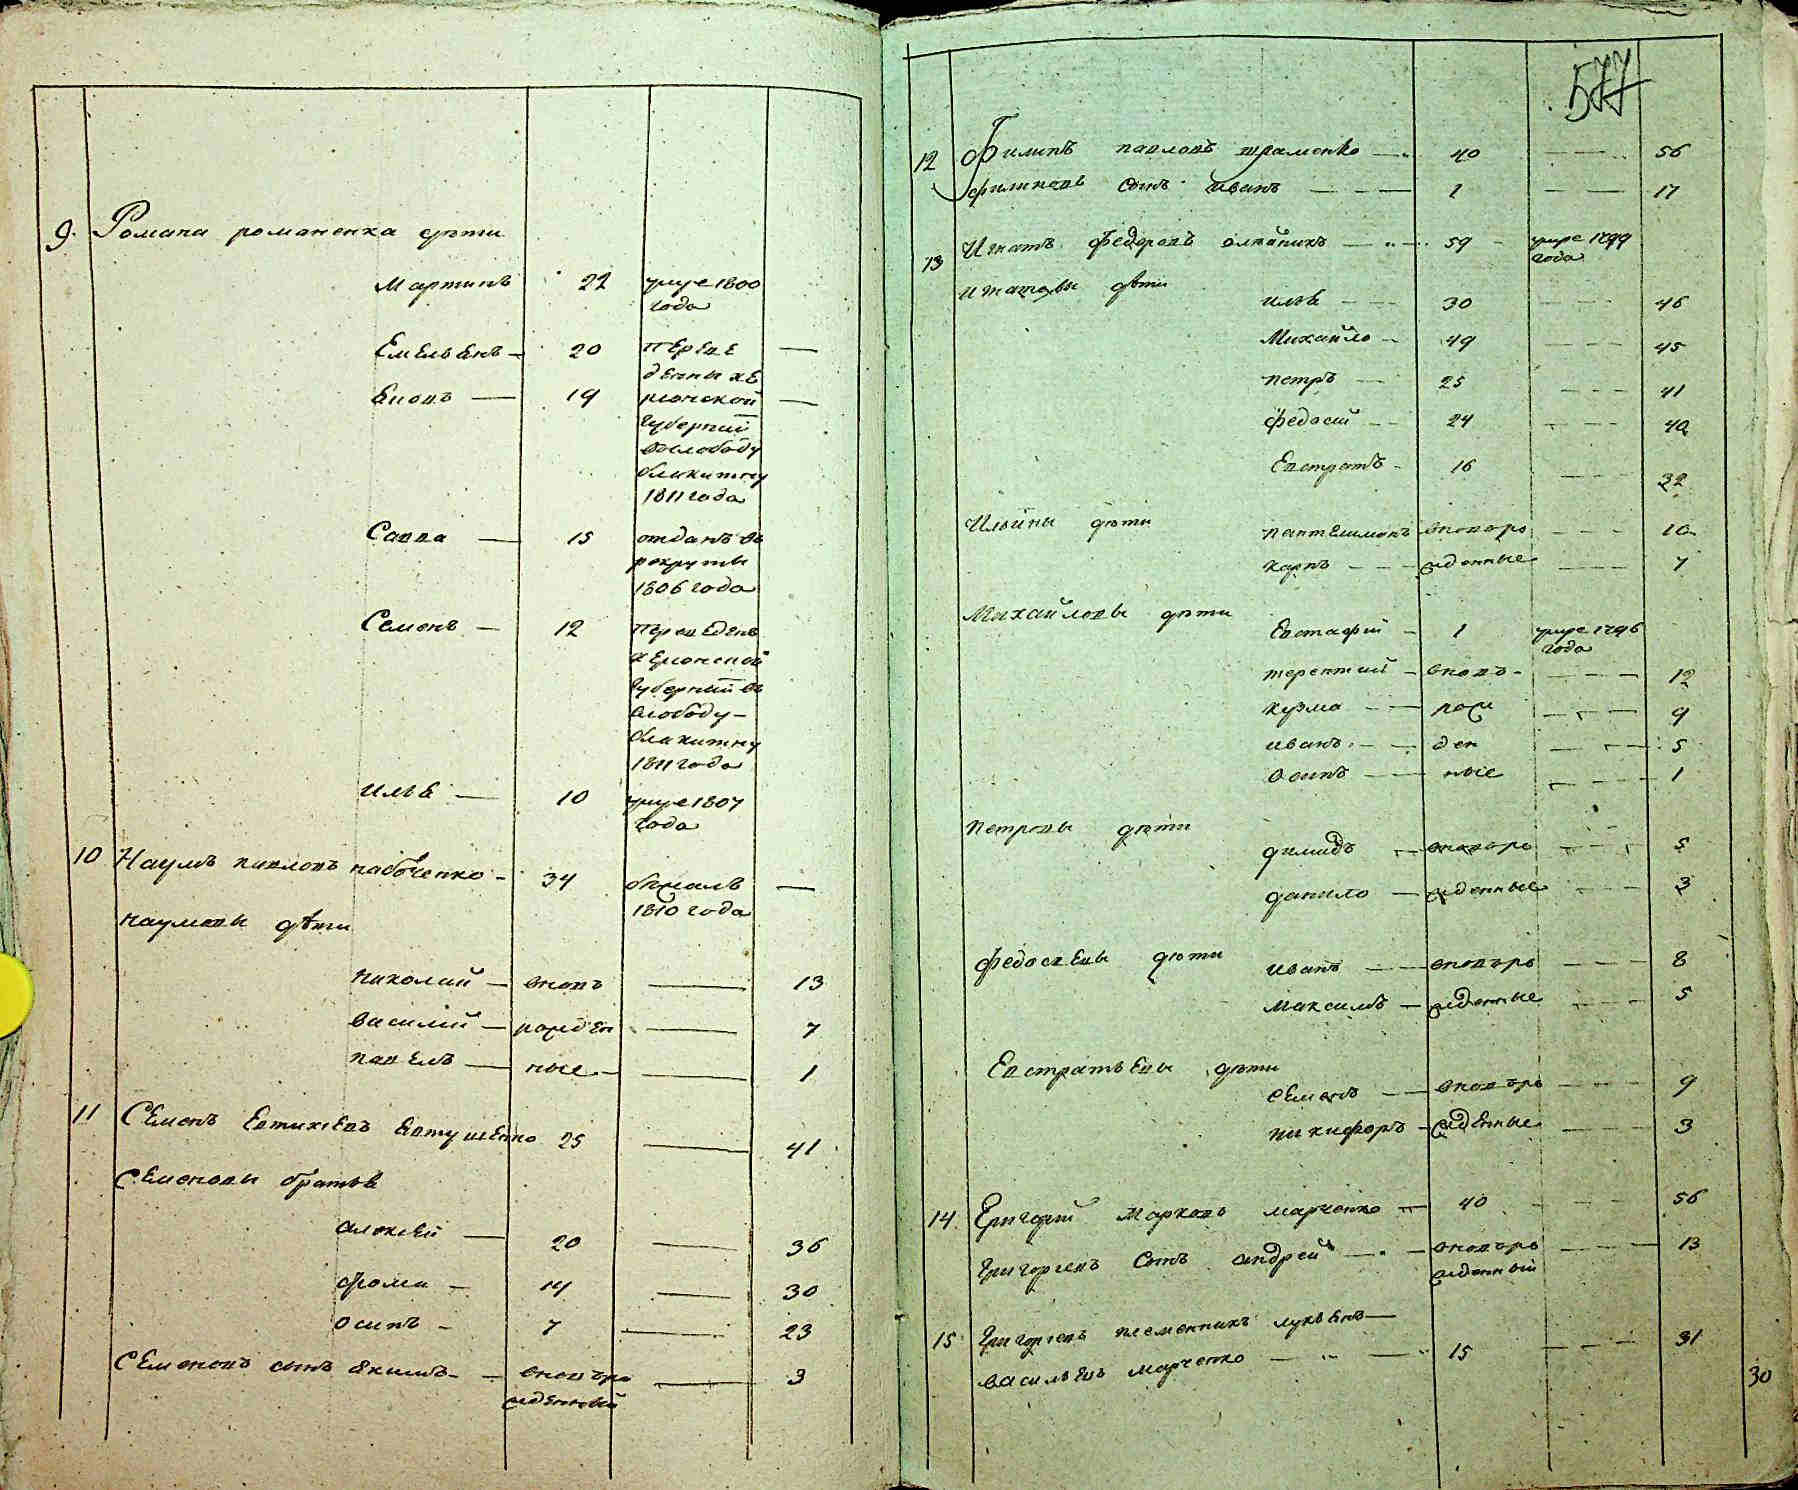 9. Романа романенка дѣти
Мартинъ 22 умре 1800
года
Емельянъ 20 переве
дены хе
Яковъ 19 рсонской
губерний
вослободу
блакитну
1811 года
Савва 15 отданъ въ
рекруты
1806 года
Семенъ 12 переведенъ
херсонской
губерний въ
слободу
блакитну
1811 года
илья 10 умре 1807
года
10 Наумъ павловъ набоченко 34 бежалъ
1810 года
наумовы дѣти
николай вновь 13
василий рожден 7
павелъ ные 1
11 Семенъ Евтихіевъ Евтушенко 25 41
Семеновы братья
алексей 20 36
фома 14 30
осипъ 7 23
Семеновъ сынъ якимъ вновъро 3
жденный
577
12 Филипъ павловъ 40 56
филиповъ сынъ иванъ 1 17
13 Игнатъ федоровъ олейникъ 59 умре 1799
года
игнатовы дѣти
илья 30 46
Михайло 29 45
петръ 25 41
федосий 24 40
Евстратъ 16 32
Ильины дѣти
пантелимонъ вновьро 10
карпъ жденные 7
Михайловы дѣти
Евстафий 1 умре 1796
года
терентий вновь 12
кузма рож 9
иванъ ден 5
осипъ ные 1
петровы дѣти
димидъ вновьро 5
данило жденные 3
федосѣевы дѣти
иванъ вновьро 8
максимъ жденные 5
Евстратьевы дѣти
семенъ вновьро 9
никифоръ жденные 3
14. Григорий марковъ марченко 40 56
григориевъ сынъ андрей вновъро 13
жденный
15 григориевъ племенникъ лукьянъ
васильевъ марченко 15 31
30